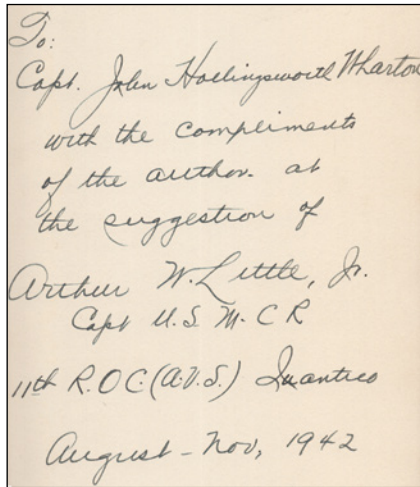 To:
Capt. John Hollingsworth Wharton
with the compliments
of the author. at
the suggestion of
Arthur W. Little, Jr.
Capt U.S. M.C R
11th R.O.C. (A.V.S.) Quantico
August - Nov, 1942